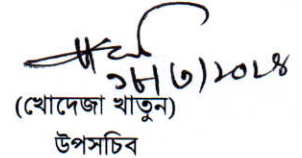 ১৮/৩/২০২৪
(খোদেজা খাতুন)
উপসচিব